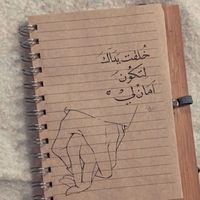 خُلقت يَداكَ
لتَكُونَ
أمَانٌ لي